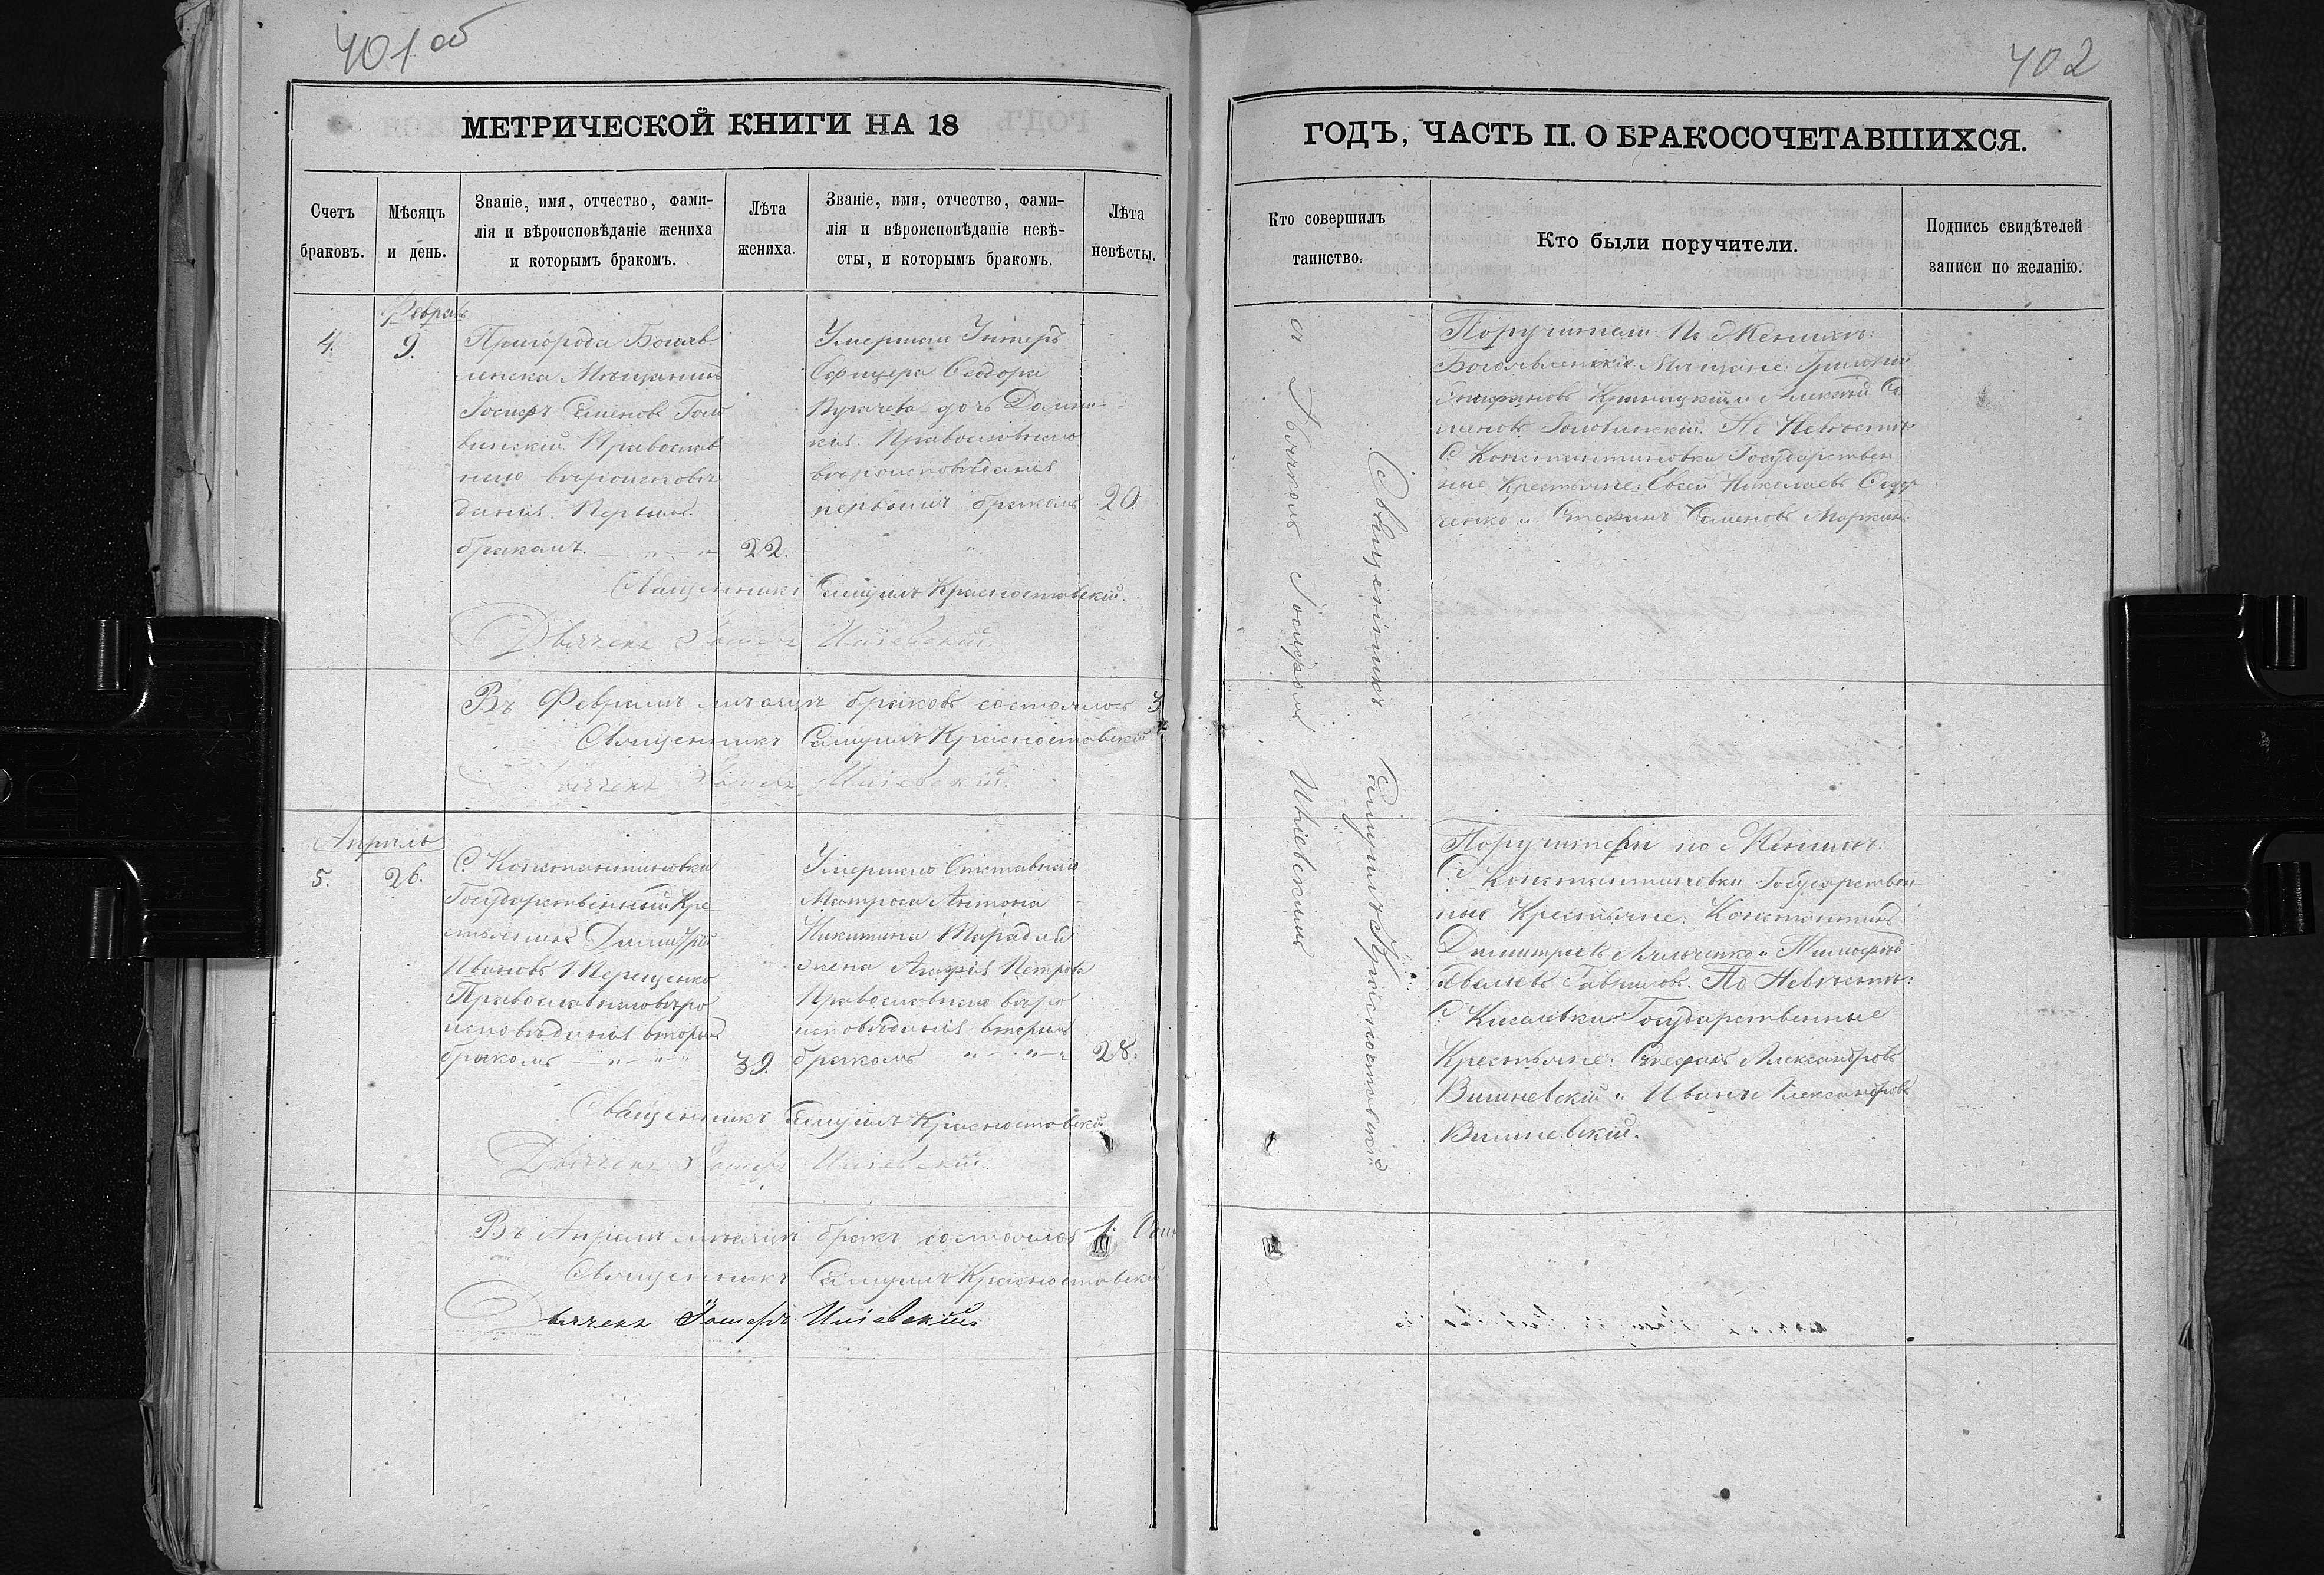 401 об
МЕТРИЧЕСКОЙ КНИГИ НА 18
Счетъ браковъ.
Мѣсяцъ и день.
Званіе, имя, отчество, фами-
лія и вѣроисповѣданіе жениха
и которымъ бракомъ.
Лѣта жениха.
Званіе, имя, отчество, фами-
лія и вѣроисповѣданіе невѣ-
сты, и которымъ бракомъ.
Лѣта невѣсты.
Февраль
4.
9.
Пригорода Богояв
ленска Мѣщанинъ
Іосифъ Семеновъ Голо
винскій Православ
наго вѣроисповѣ
данія. Первымъ
бракомъ.
22.
Умершаго Унтеръ
Офицера Феодора
Пугачева дочь Домни
кія. Православнаго
вѣроисповѣданія
первымъ бракомъ
20.
Священникъ Самуилъ Красностовскій.
Дьячекъ Іосифъ Ижевскій.
Въ Февралѣ мѣсяцѣ браковъ состоялось 3
Священникъ Самуилъ Красностовскій
Дьячекъ Іосифъ
Апрѣль
5.
26.
С. Константиновки
Государственный Кре
стьянинъ Димитрій
Ивановъ Терещенко
Православнаго вѣро
исповѣданія вторымъ
бракомъ
39.
Умершаго Отставнаго
Матроса Антона
Никитина
жена Агафія Петрова
Православнаго вѣро
исповѣданія вторымъ
бракомъ
28.
Священникъ Самуилъ Красностовскій
Дьячекъ Іосифъ
Въ Апрѣлѣ мѣсяцѣ бракъ состоялся 1.
Священникъ Самуилъ Красностовскій
Дьячекъ Іосифъ
402
ГОДЪ, ЧАСТЬ II. О БРАКОСОЧЕТАВШИХСЯ.
Кто совершилъ таинство.
Кто были поручители.
Подпись свидѣтелей
записи по желанію.
Священникъ Самуилъ Красностовскій
съ Дьячкомъ Іосифомъ
Поручители По Женихѣ:
Богоявленскіе Мѣщане: Григорій
Криницкій и Алексѣй Се
меновъ Головинскій. По Невѣстѣ:
С. Константиновки Государствен
ные Крестьяне: Николаевъ
и Семеновъ
Поручители по Женихѣ:
С. Константиновки Государствен
ные Крестьяне: Константинъ
Димитріевъ и Тимофей
Гавриловъ. По Невѣстѣ:
С. Киселевки Государственные
Крестьяне: Стефанъ Александровъ
Вишневскій и Иванъ Александровъ
Вишневскій.